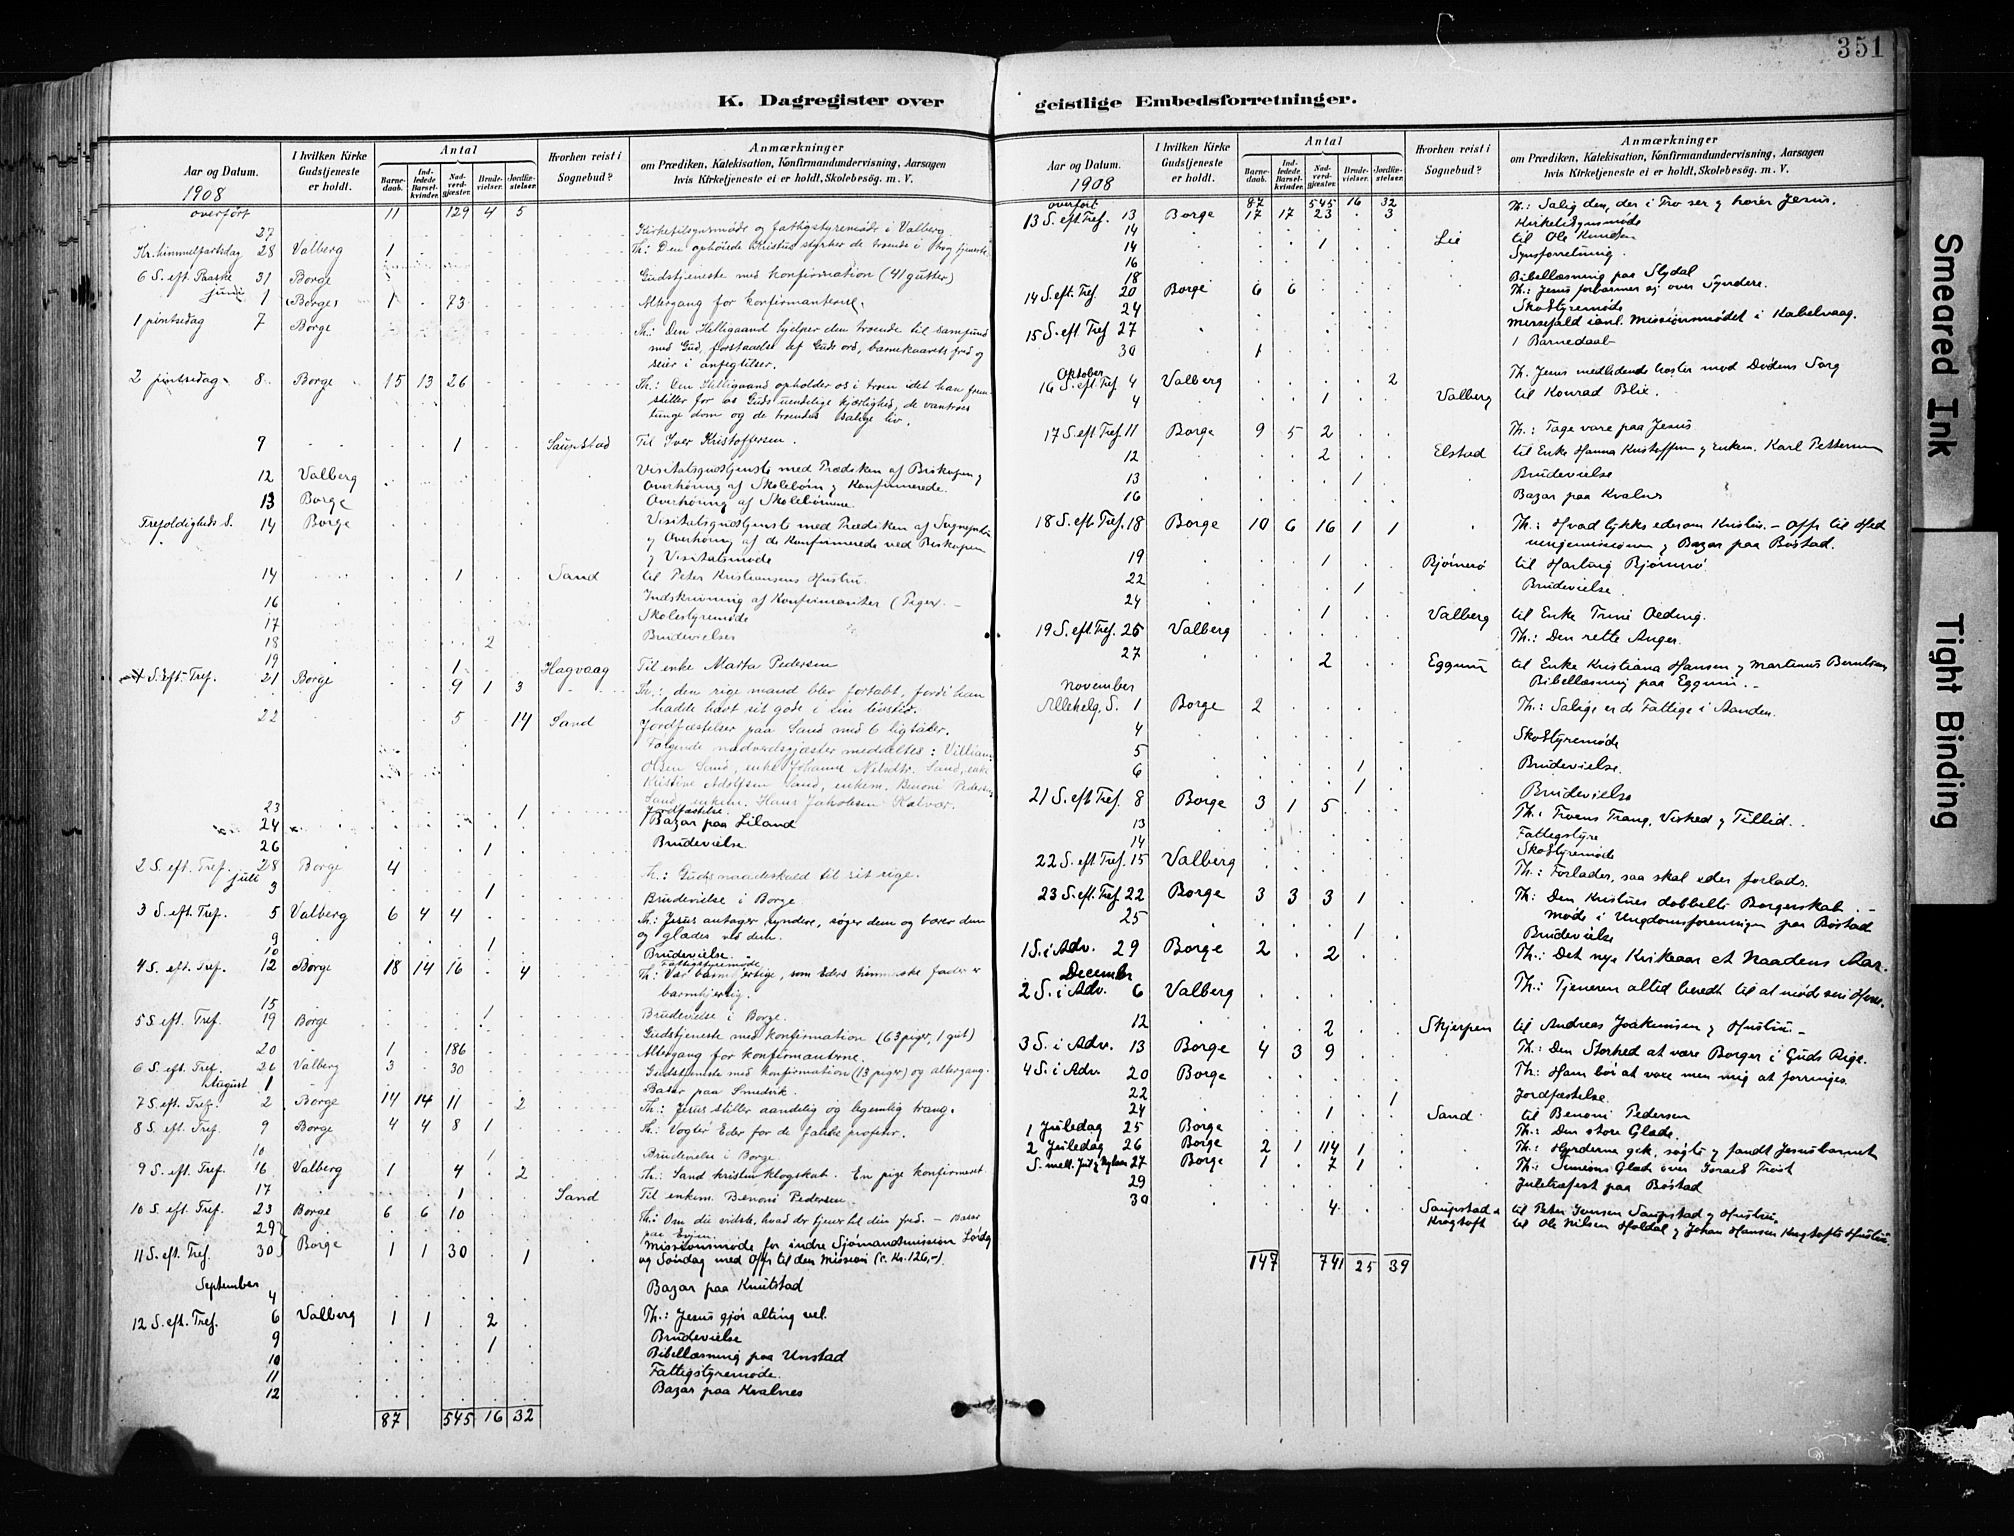 351
K. Dagregister over geistlige Embedsforretninger.
Aar og Datum.
1908
I hvilken Kirke Gudstjeneste er holdt.
Antal
Barnedaab.
Indledede Barselkvinder.
Nadverdgjæster.
Brudevielser.
Jordfæstelser.
Hvorhen reist i Sognebud?
Anmærkninger
om Prædiken, Katekisation, Konfirmandundervisning, Aarsagen
hvis Kirketjeneste ei er holdt, Skolebesøg. m. V.
overført 11 129 4 5
27 Kirketilsynsmøde og fattigstyremøde i Valberg
Kr. himmelfartsdag 28 Valberg 1 Th: Den ophøiede Kristus styrker de troende i
6 S. eft. Paaske 31 Borge Gudstjeneste med konfirmation (41 gutter)
juni 1 Borge 1 83 Altergang for konfirmanterne
1 pintsedag 7 Borge Th: Den Helligaand hjelper den troende til samfund
med Gud, forstaaelse af Guds ord, barnekaarets fred og
seier i anfegtelser.
2 pintsedag 8 Borge 15 13 26 Th: Den Helligaand opholder os i troen idet han frem
stiller for os Guds uendelige kjærlighed, de vantros
tunge dom og de troendes salige liv.
9 1 Saupstad Til Iver Kristoffersen.
12 Valberg Visitatsgudstjeneste med Prædiken af Biskopen og
Overhøring af Skolebørn og Konfirmerede.
13 Borge Overhøring af Skolebørnene
Trefoldigheds S. 14 Borge Visitatsgudstjeneste med Prædiken af Sognepræsten
og Overhøring af de Konfirmerede ved Biskopen
og Visitatsmøde
14 1 Sand til Peter Kristiansens Hustru
16 Indskrivning af Konfirmanter (Piger)
17 Skolestyremøde
18 2 Brudevielser
19 1 Hagvaag Til enke Marta Pedersen
1 S. eft. Tref. 21 Borge 9 1 3 Th.: den rige mand blev fortabt, fordi han
hadde havt sit gode i sin livstid.
22 5 14 Sand Jordfæstelser paa Sand med 6 ligtaler.
Følgende nadverdsgjæster meddeltes: Villiam
Olsen Sand, enke Johanne Nilsdtr. Sand, enke
Kristine Adolfsen Sand, enkem. Benoni Pedersen
Sand, enkem. Hans Jakobsen Kalvar.
23 1 Jordfæstelse
24 Bazar paa Liland
26 1 Brudevielse
2 S. eft. Tref. 28 Borge 4 Th.: Guds naadeskald til sit rige.
juli 3 1 Brudevielse i Borge
3 S. eft. Tref. 5 Valberg 6 4 4 Th: Jesus antager syndere, søger dem og bærer dem
og glædes ved dem.
9 1 Brudevielse
10 Fattigstyremøde
4 S. eft. Tref. 12 Borge 18 14 16 4 Th: Vær barmhjertige, som Eders himmelske fader er
barmhjertig.
15 1 Brudevielse i Borge.
5 S. eft. Tref. 19 Borge Gudstjeneste med konfirmation (63 piger, 1 gut)
20 1 186 Altergang for konfirmanterne.
6 S. eft. Tref. 26 Valberg 3 30 Gudstjeneste med konfirmation (13 piger) og altergang.
August 1 Basar paa Smedvik
7 S. eft. Tref. 2 Borge 14 14 11 2 Th.: Jesus stiller aandelig og legemlig trang.
8 S. eft. Tref. 9 Borge 4 4 8 1 Th.: Vogter Eder for de falske profeter.
10 1 Brudevielse i Borge
9 S. eft. Tref. 16 Valberg 1 4 2 Th: Sand kristen klogskab. En pige konfirmeret
17 1 Sand Til enkem. Benoni Pedersen
10 S. eft. Tref. 23 Borge 6 6 10 Th: Om du vidste, hvad der tjener til din fred. — Basar
paa Evjen.
29
11 S. eft. Tref. 30 Borge 1 1 30 1 Missionsmøde for indre Sjømandsmission Lørdag
og Søndag med Offer til den Mission (c. Kr. 126,-).
September
4 Bazar paa Knutstad
12 S. eft. Tref. 6 Valberg 1 1 2 Th.: Jesus gjør alting vel.
9 1 Brudevielse
10 Bibellæsning paa Unstad
11 Fattigstyremøde.
12 Bazar paa Kvalnes
87 545 16 32
Aar og Datum.
1908
I hvilken Kirke Gudstjeneste er holdt.
Antal
Barnedaab.
Indledede Barselkvinder.
Nadverdgjæster.
Brudevielser.
Jordfæstelser.
Hvorhen reist i Sognebud?
Anmærkninger
om Prædiken, Katekisation, Konfirmandundervisning, Aarsagen
hvis Kirketjeneste ei er holdt, Skolebesøg. m. V.
overført 87 545 16 32
13 S. eft. Tref. 13 Borge 17 17 23 3 Th: Salig den, der i Tro ser og hører Jesus.
14 Kirketilsynsmøde
14 1 Lie til Ole Knudsen
16 Synsforretning
18 Bibellæsning paa Slydal
14 S. eft. Tref. 20 Borge 6 6 Th: Jesus forbarmer sig over Syndere.
24 Skolstyremøde
15 S. eft Tref 27 Messefald i anl. Missionsmødet i Kabelvaag.
30 1 1 Barnedaab
Oktober
16 S. eft Tref 4 Valberg 2 Th. Jesus medlidende trøster mod Dødens Sorg
4 1 Valberg til Konrad Blix.
17 S. eft Tref 11 Borge 9 5 2 Th.: Tage vare paa Jesus
12 2 Elstad til Enke Hanna Kristoffersen og Enkem. Karl Pettersen
13 1 Brudevielse
16 Bazar paa Kvalnes
18 S. eft Tref. 18 Borge 10 6 16 1 1 Th: Hvad tykkes eder om Kristus. — Offer til Hed
ningemissionen og Bazar paa Bøstad.
19 1 Bjørnerø til Harting Bjørnerø
22 1 Brudevielse
24 1 Valberg til Enke Trine Oeding.
19 S. eft. Tref. 25 Valberg Th.: Den rette Anger.
27 2 Eggum til Enke Kristiana Hansen og Martinus Berntsen
Bibellæsning paa Eggum. —
November
Allehelg. S. 1 Borge 2 Th: Salige er de Fattige i Aanden.
4 Skolstyremøde
5 1 Brudevielse
6 1 Brudevielse
21 S. eft Tref. 8 Borge 3 1 5 Th.: Troens Trang, Vished og Tillid.
13 Fattigstyre
14 Skolstyremøde
22 S. eft Tref. 15 Valberg Th.: Forlader, saa skal eder forlads.
23 S. eft. Tref 22 Borge 3 3 3 1 Th: Den Kristnes dobbelte Borgerskab. —
Møde i Ungdomsforeningen paa Bøstad
25 1 Brudevielse
1 S. i Adv. 29 Borge 2 2 Th.: Det nye Kirkeaar et Naadens Aar.
December
2 S. i Adv. 6 Valberg Th: Tjeneren altid beredt til at møde sin Herre.
12 2 Skjerpen til Andreas Joakimsen og Hustru —
3 S. i Adv. 13 Borge 4 3 9 Th: Den Storhed at være Borger i Guds Rige.
4 S. i Adv 20 Borge Th: Ham bør at voxe men mig at forringes.
22 1 Jordfæstelse.
24 1 Sand til Benoni Pedersen
1 Juledag 25 Borge Th: Den store Glæde.
2 Juledag 26 Borge 2 1 114 1 Th: Hyrderne gik, søgte og fandt Jesusbarnet
S. mell. Jul og Nytaar 27 Borge 1 7 1 Th: Simeons Glæde over Israels Trøst
29 Juletræfest paa Bøstad
30 4 Saupstad & Krogtoft til Peter Jensen Saupstad og Hustru.
til Ole Nilsen Holdal og Johan Hansen Krogtofts Hustru.
147 741 25 39
Smeared Ink
Tight Binding